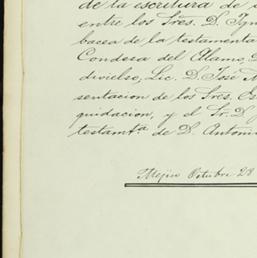 de la escritura de
entre los Sres. D. Ign
bacea de la testamenta
Condesa del Alamo, D
divielso, Lic. D. José M
sentacion de los Sres. Es
quidacion, y el Sr. D.
testamta. de D. Antoni
Mejico Octubre 28